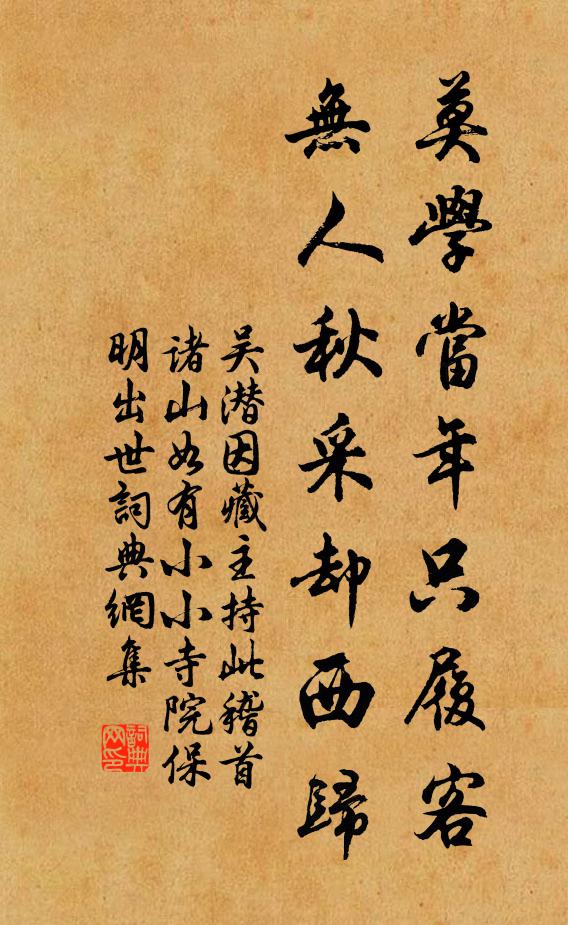 莫學當年只履客
無人秋采却西歸
吴潜因藏主持此稽首
诸山如有小小寺院保
明出世詞典網集
詞典網印